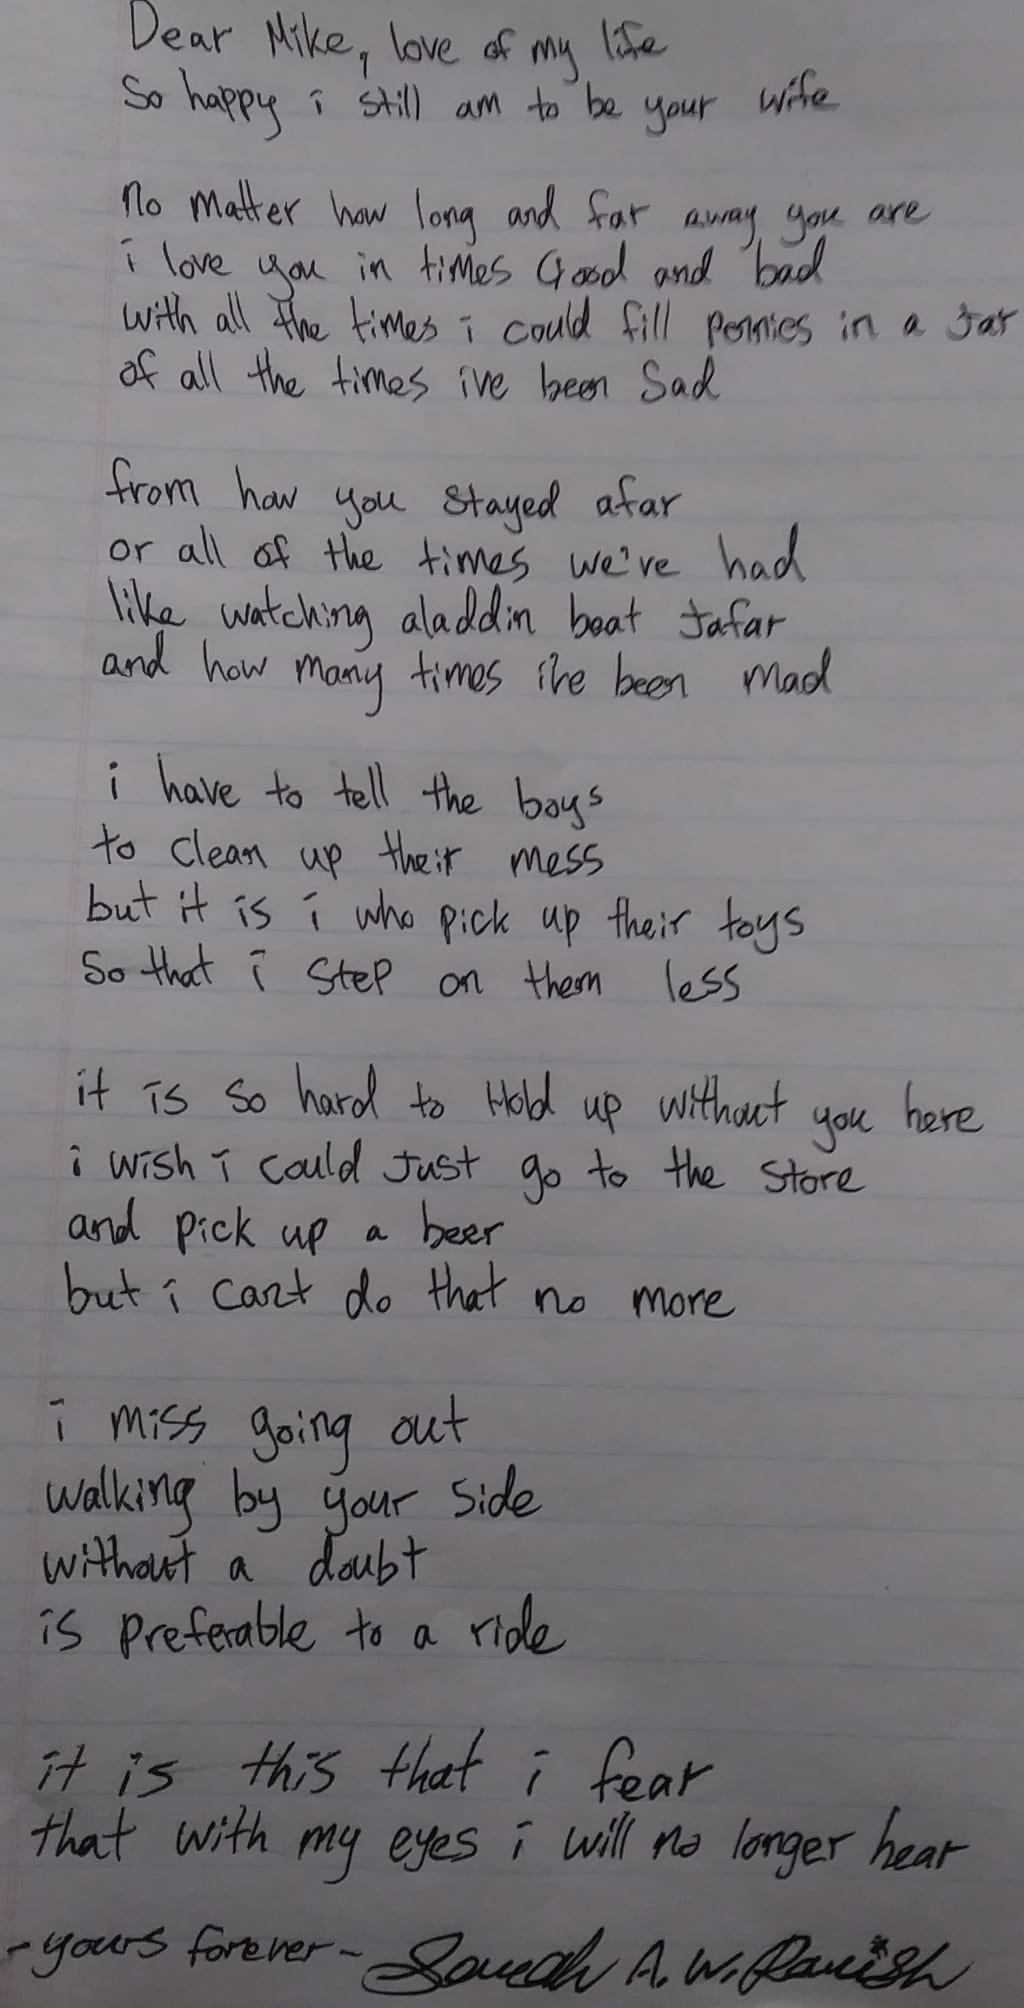 Dear Mike, love of my life
So happy i still am to be your wife
no matter how long and far away you are
i love you in times Good and bad
with all the times i could fill pennies in a Jar
of all the times ive been Sad
from how you stayed afar
or all of the times we've had
like watching aladdin beat Jafar
and how many times i've been mad
i have to tell the boys
to clean up their mess
but it is i who pick up their toys
So that i step on them less
it is so hard to Hold up without you here
i wish i could Just go to the store
and pick up a beer
but i cant do that no more
i miss going out
walking by your side
without a doubt
is preferable to a ride
it is this that i fear
that with my eyes i will no longer hear
-yours forever- Sarah A. W. Parish